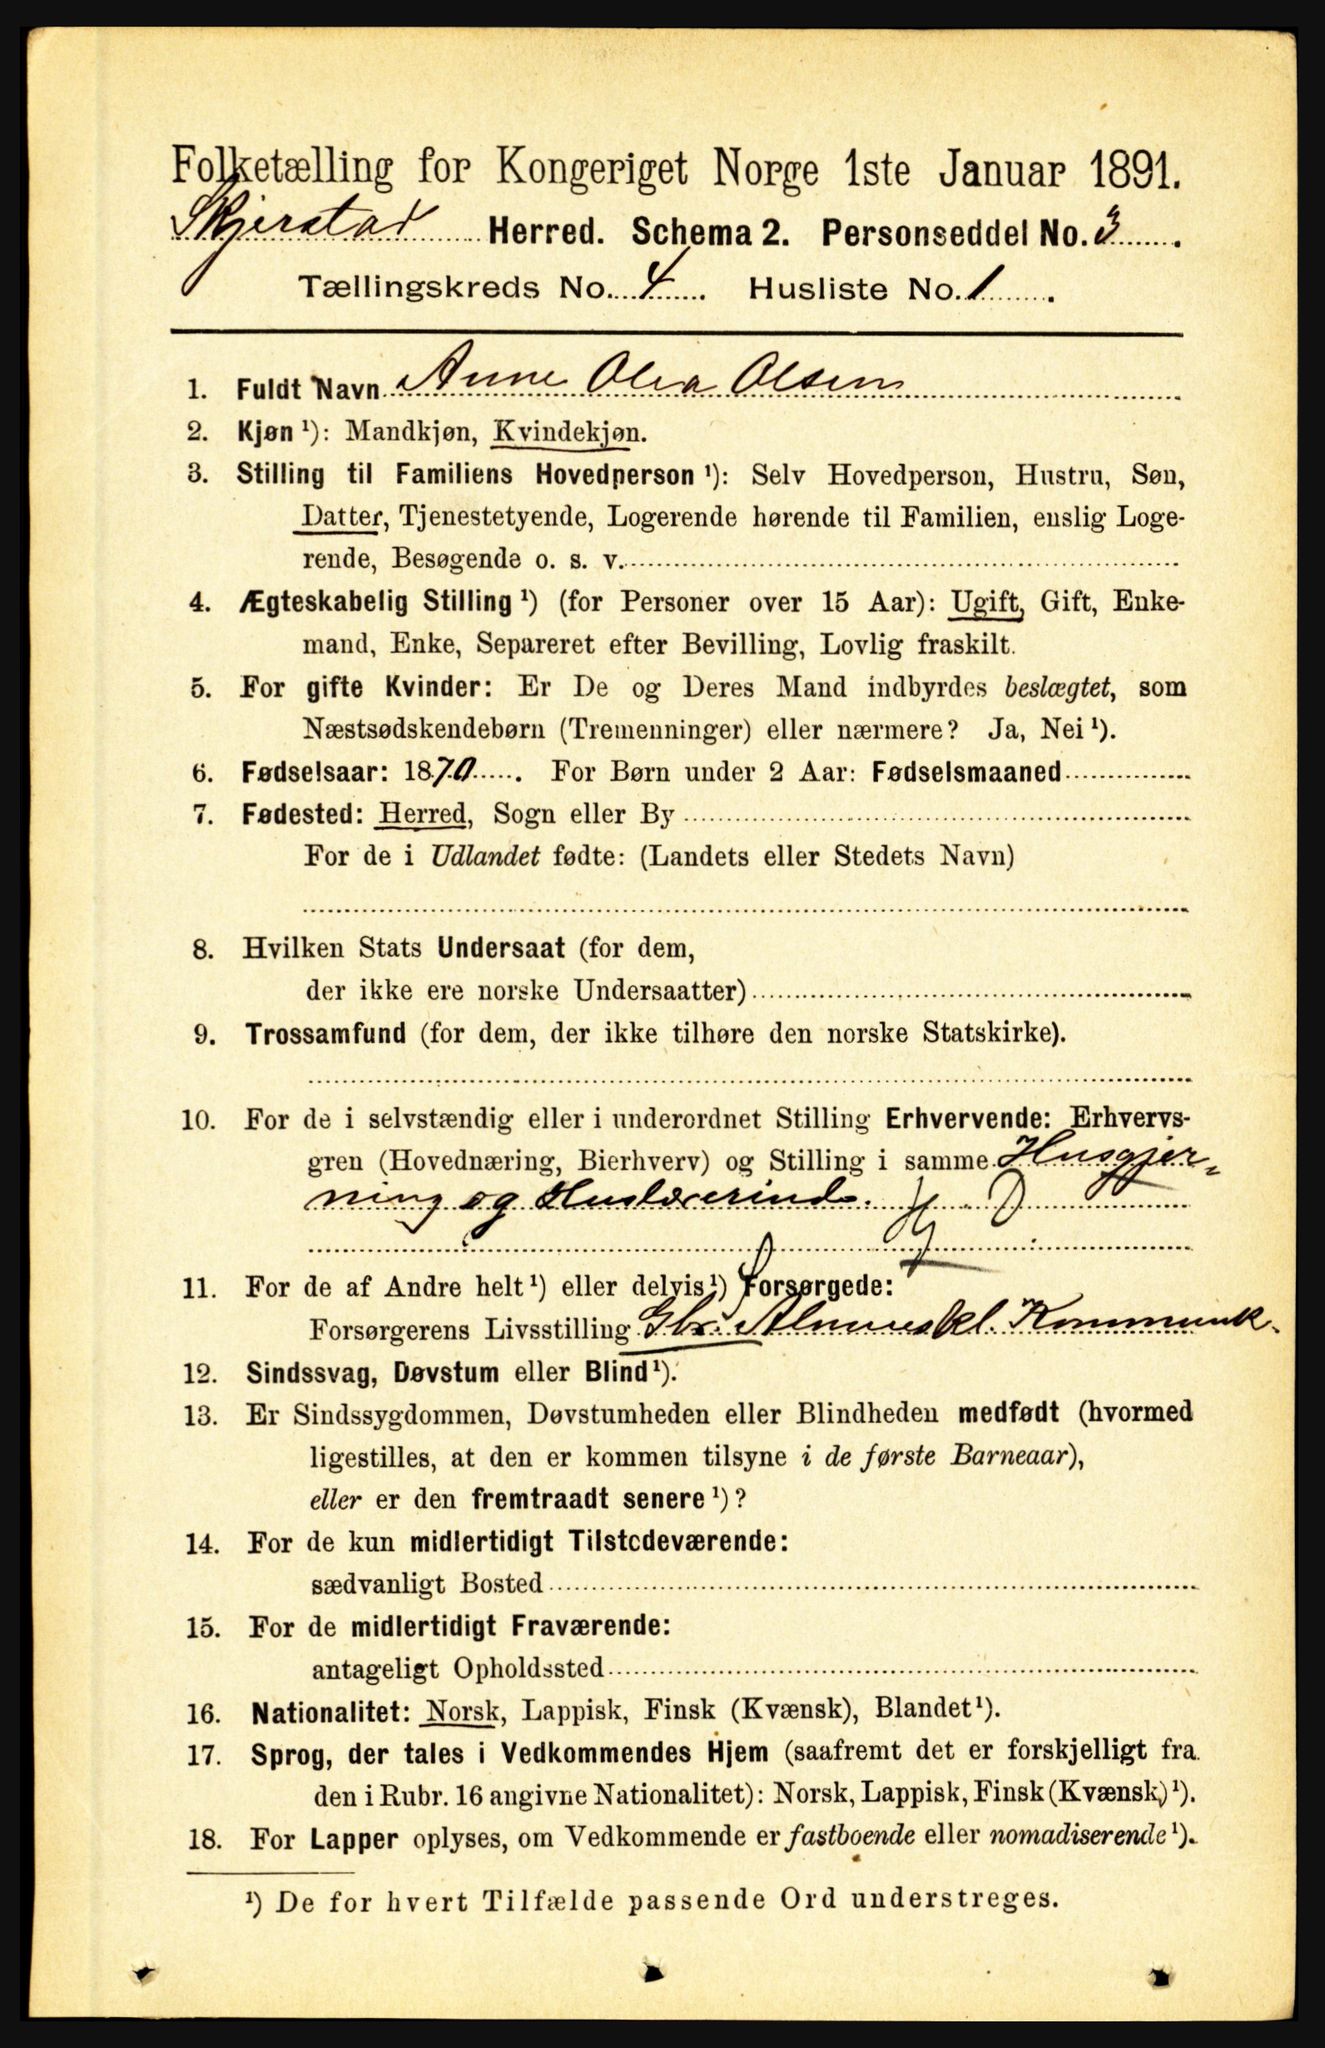 Folketælling for Kongeriget Norge 1ste Januar 1891.
Skjerstad Herred. Schema 2. Personseddel No. 3.
Tællingskreds No. 4. Husliste No. 1.
1. Fuldt Navn Anne Olea Olsen
2. Kjøn ¹): Mandkjøn, Kvindekjøn.
3. Stilling til Familiens Hovedperson ¹): Selv Hovedperson, Hustru, Søn,
Datter, Tjenestetyende, Logerende hørende til Familien, enslig Loge-
rende, Besøgende o. s. v.
4. Ægteskabelig Stilling ¹) (for Personer over 15 Aar): Ugift, Gift, Enke-
mand, Enke, Separeret efter Bevilling, Lovlig fraskilt.
5. For gifte Kvinder: Er De og Deres Mand indbyrdes beslægtet, som
Næstsødskendebørn (Tremenninger) eller nærmere? Ja, Nei ¹).
6. Fødselsaar: 1870. For Børn under 2 Aar: Fødselsmaaned
7. Fødested: Herred, Sogn eller By
For de i Udlandet fødte: (Landets eller Stedets Navn)
8. Hvilken Stats Undersaat (for dem,
der ikke ere norske Undersaatter)
9. Trossamfund (for dem, der ikke tilhøre den norske Statskirke).
10. For de i selvstændig eller i underordnet Stilling Erhvervende: Erhvervs-
gren (Hovednæring, Bierhverv) og Stilling i samme Husgjer-
ning og Huslærerinde. H D
11. For de af Andre helt ¹) eller delvis ¹) Forsørgede:
Forsørgerens Livsstilling Gbr.
12. Sindssvag, Døvstum eller Blind ¹).
13. Er Sindssygdommen, Døvstumheden eller Blindheden medfødt (hvormed
ligestilles, at den er kommen tilsyne i de første Barneaar),
eller er den fremtraadt senere ¹)?
14. For de kun midlertidigt Tilstedeværende:
sædvanligt Bosted
15. For de midlertidigt Fraværende:
antageligt Opholdssted
16. Nationalitet: Norsk, Lappisk, Finsk (Kvænsk), Blandet ¹).
17. Sprog, der tales i Vedkommendes Hjem (saafremt det er forskjelligt fra
den i Rubr. 16 angivne Nationalitet): Norsk, Lappisk, Finsk (Kvænsk) ¹).
18. For Lapper oplyses, om Vedkommende er fastboende eller nomadiserende ¹).
¹) De for hvert Tilfælde passende Ord understreges.